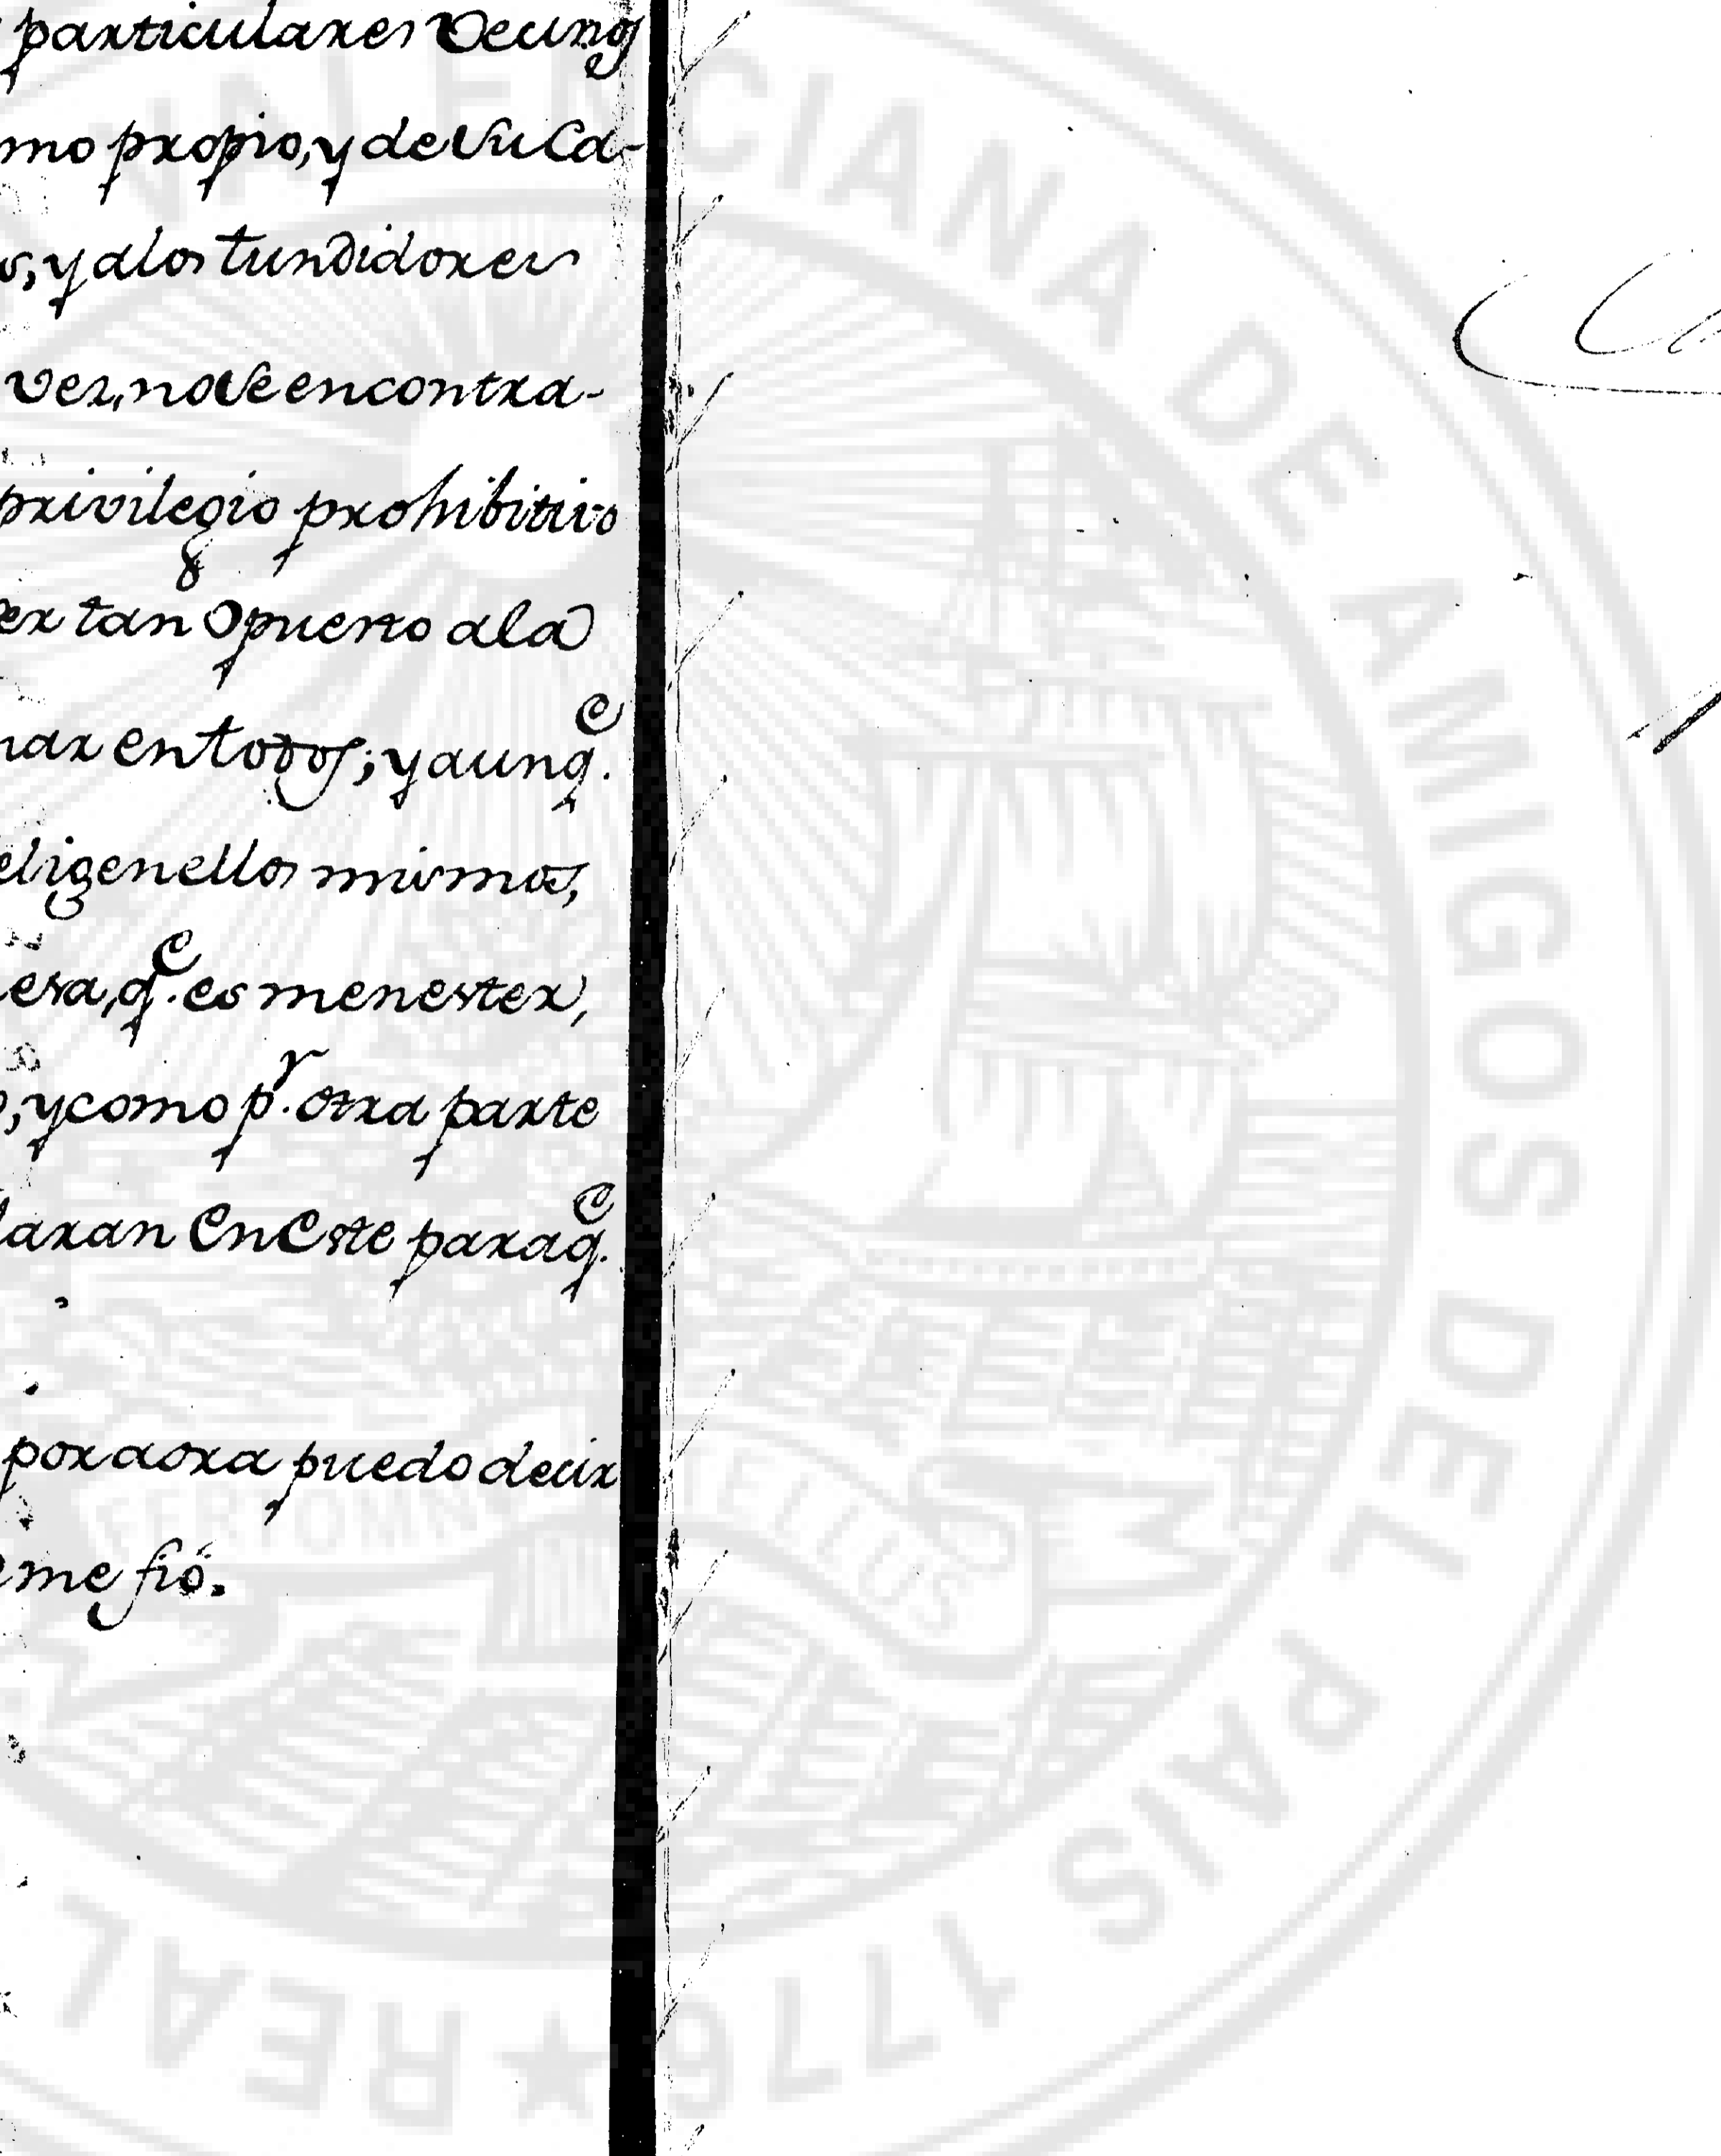 particulares de uno
mo propio, y de su Ca-
s, y a los tundidores
vez, no se encontra-
privilegio prohibitivo
er tan opuesto a la
nar en todos; y aunq.e
eligen ellos mismos,
esa, q.e es menester,
, y como p.r otra parte
laran en este para q.e
por aora puedo decir
me fió.
VALENCIANA DE AMIGOS DEL PAIS 1776 ★ REAL